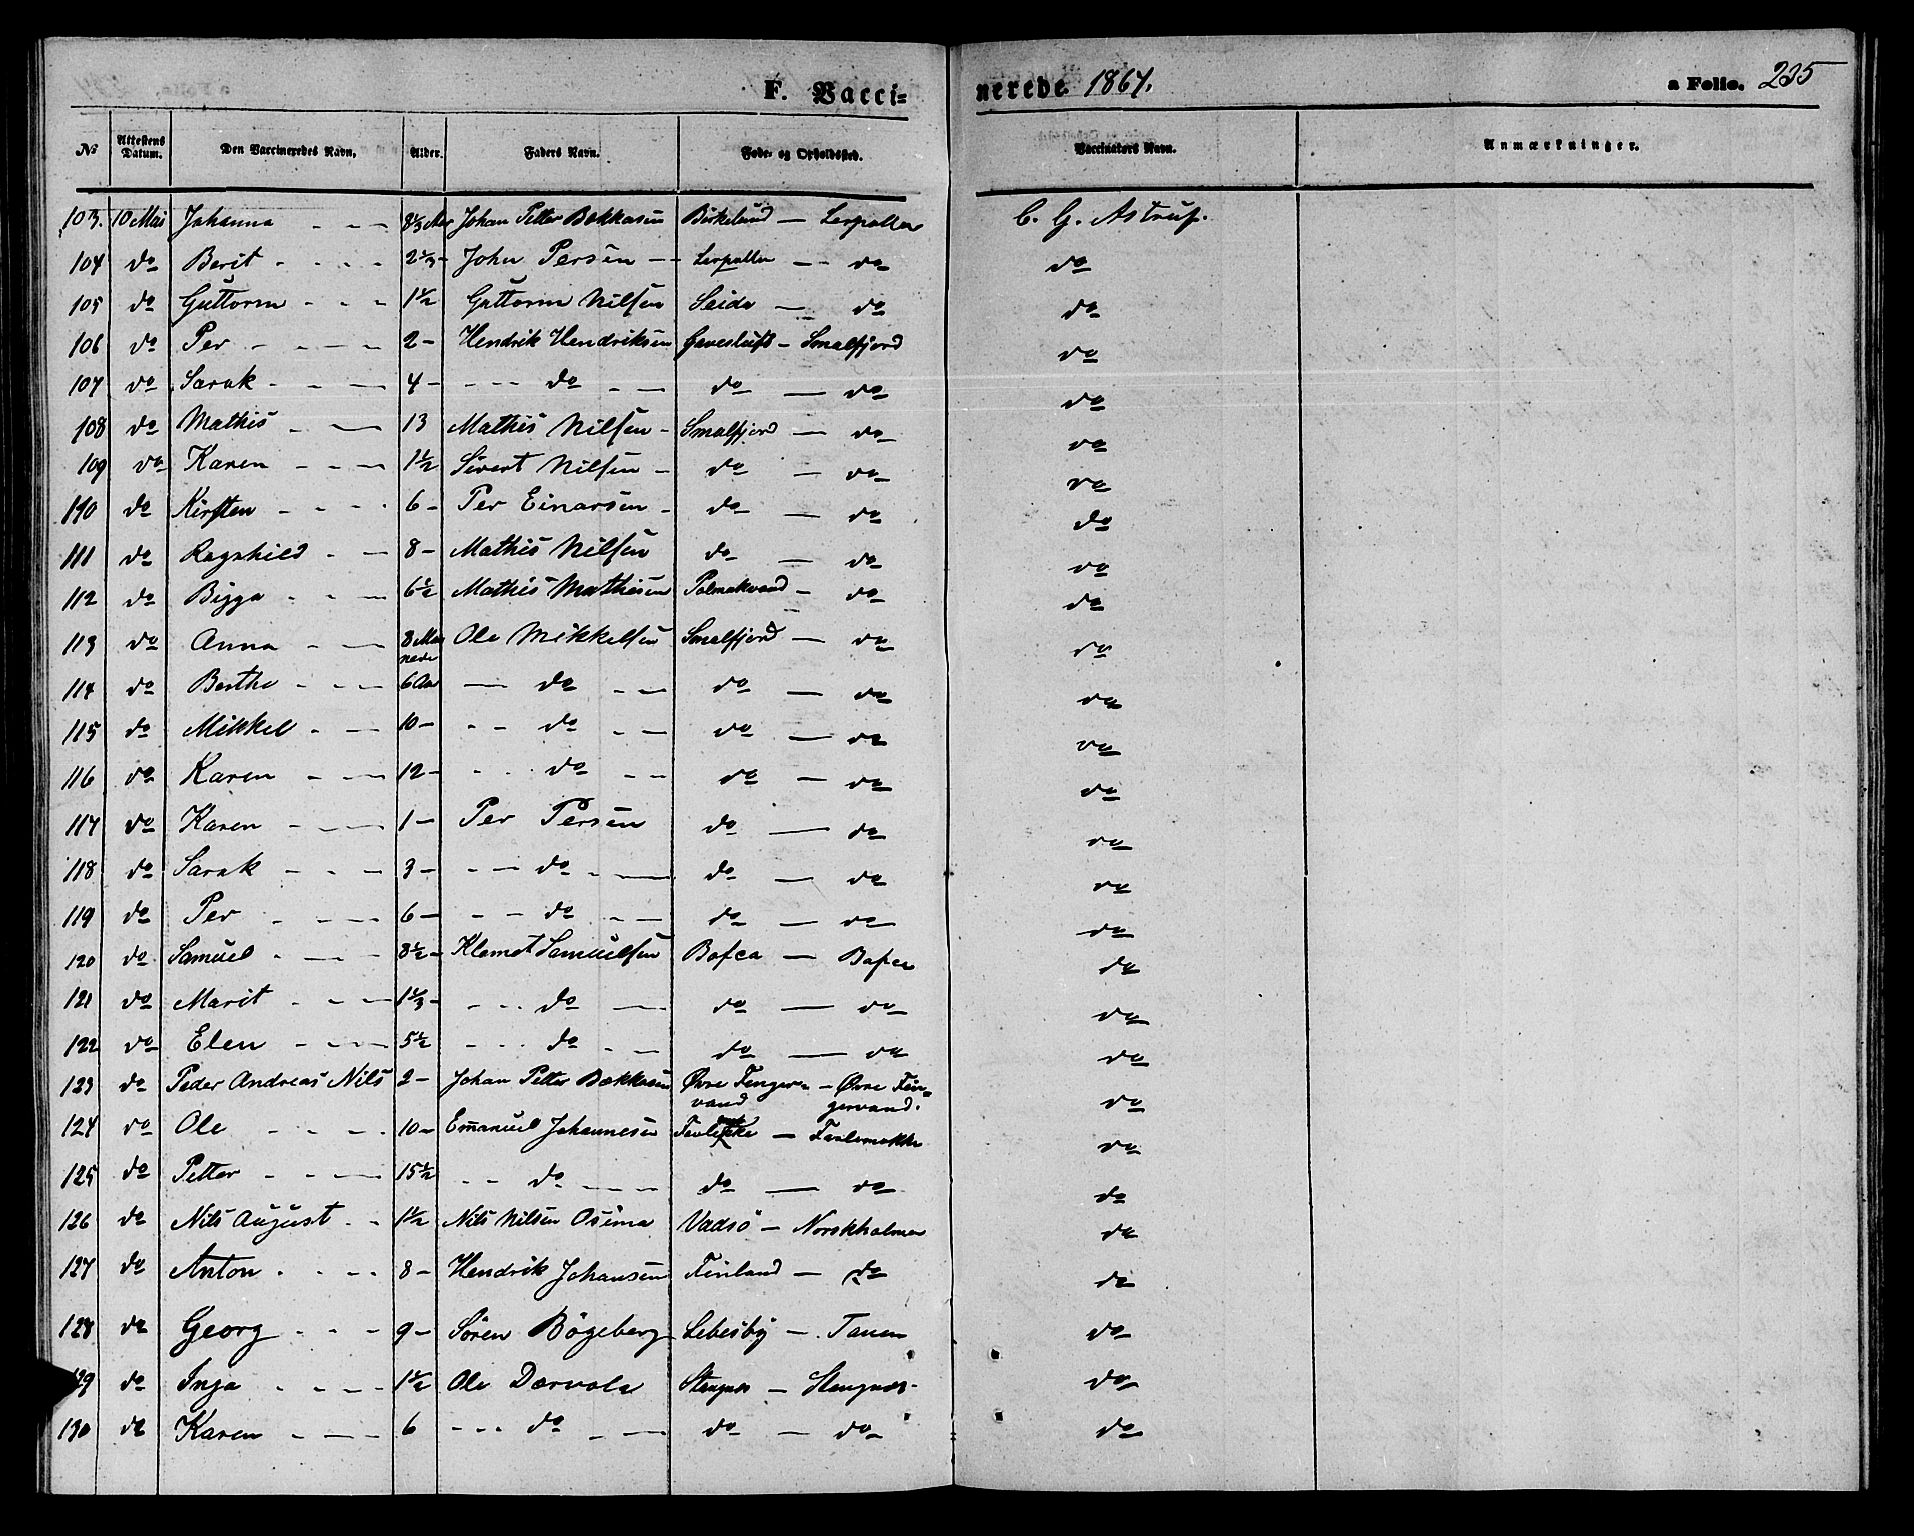 F. Vacci= nerede 1867. a Folio. 235
No Attestens Datum. Den Vaccineredes Navn. Alder. Faders Navn. Føde- og Opholdssted. Vaccinators Navn. Anmærkninger.
103. 10 Mai Johanna - - - 8 1/3 Johan Petter Bækkasen Birkelund - Lerpollen C. G. Astrup.
104 do Berit - - - - 2 1/3 - John Persen - - Lerpollen - - do do
105 do Guttorm - - - 1 1/2 Guttorm Nilsen Seida - do do
106 do Per - - - - 2 - Hendrik Hendriksen Gavesluft - Smalfjord do
107 do Sarak - - - - 4 - - - - do - - do - do do
108 do Mathis - - 13 Mathis Nilsen - Smalfjord - do do
109 do Karen - - - 1 1/2 Sivert Nilsen - do - do do
110 do Kirsten - - - - 6 - Per Einarsen - do - do do
111 do Ragnhild - - 8 - Mathis Nilsen do - do do
112 do Bigga - - - 6 1/2 Mathis Mathisen Polmakvand - do do
113 do Anna - - 8 Maa nede Ole Mikkelsen Smalfjord - do do
114 do Berthe - - - 6 Aar - do - - do - do do
115 do Mikkel - - - 10 - - - do - - do - do do
116 do Karen - - - 12 - - - do - - do - do do
117 do Karen - - - 1 - Per Persen do - do do
118 do Sarak - - - 3 - - - do - - do - do do
119 do Per - - - 6 - - - do - - do - do do
120 do Samuel - - - 8 1/2 - Klemet Samuelsen Bofca - Bofca do
121 do Marit - - - 1 1/3 - - - do - do - do do
122 do Elen - - - 5 1/2 - - - do - - do - do do
123 do Peder Andreas Nils 2 - Johan Petter Bækkasen Øvre Finger= - Øvre Fin=
vand gervand. do
124 do Ole - - - - 10 - Emanuel Johannesen - do
125 do Petter - - - 15 1/2 - - do - - - do - do do
126 do Nils August - - 1 1/2 Nils Nilsen Osima Vadsö - Norskholmen do
127 do Anton - - - - 8 - Hendrik Johansen Finland - do do
128 do Georg - - - 9 - Sören Bögeberg Lebesby - Tanen do
129 do Inga - - - - 1 1/2 Ole Dærvola Stangnes - Stangnes - do
130 do Karen - - - 6 - - - do - - do - do do